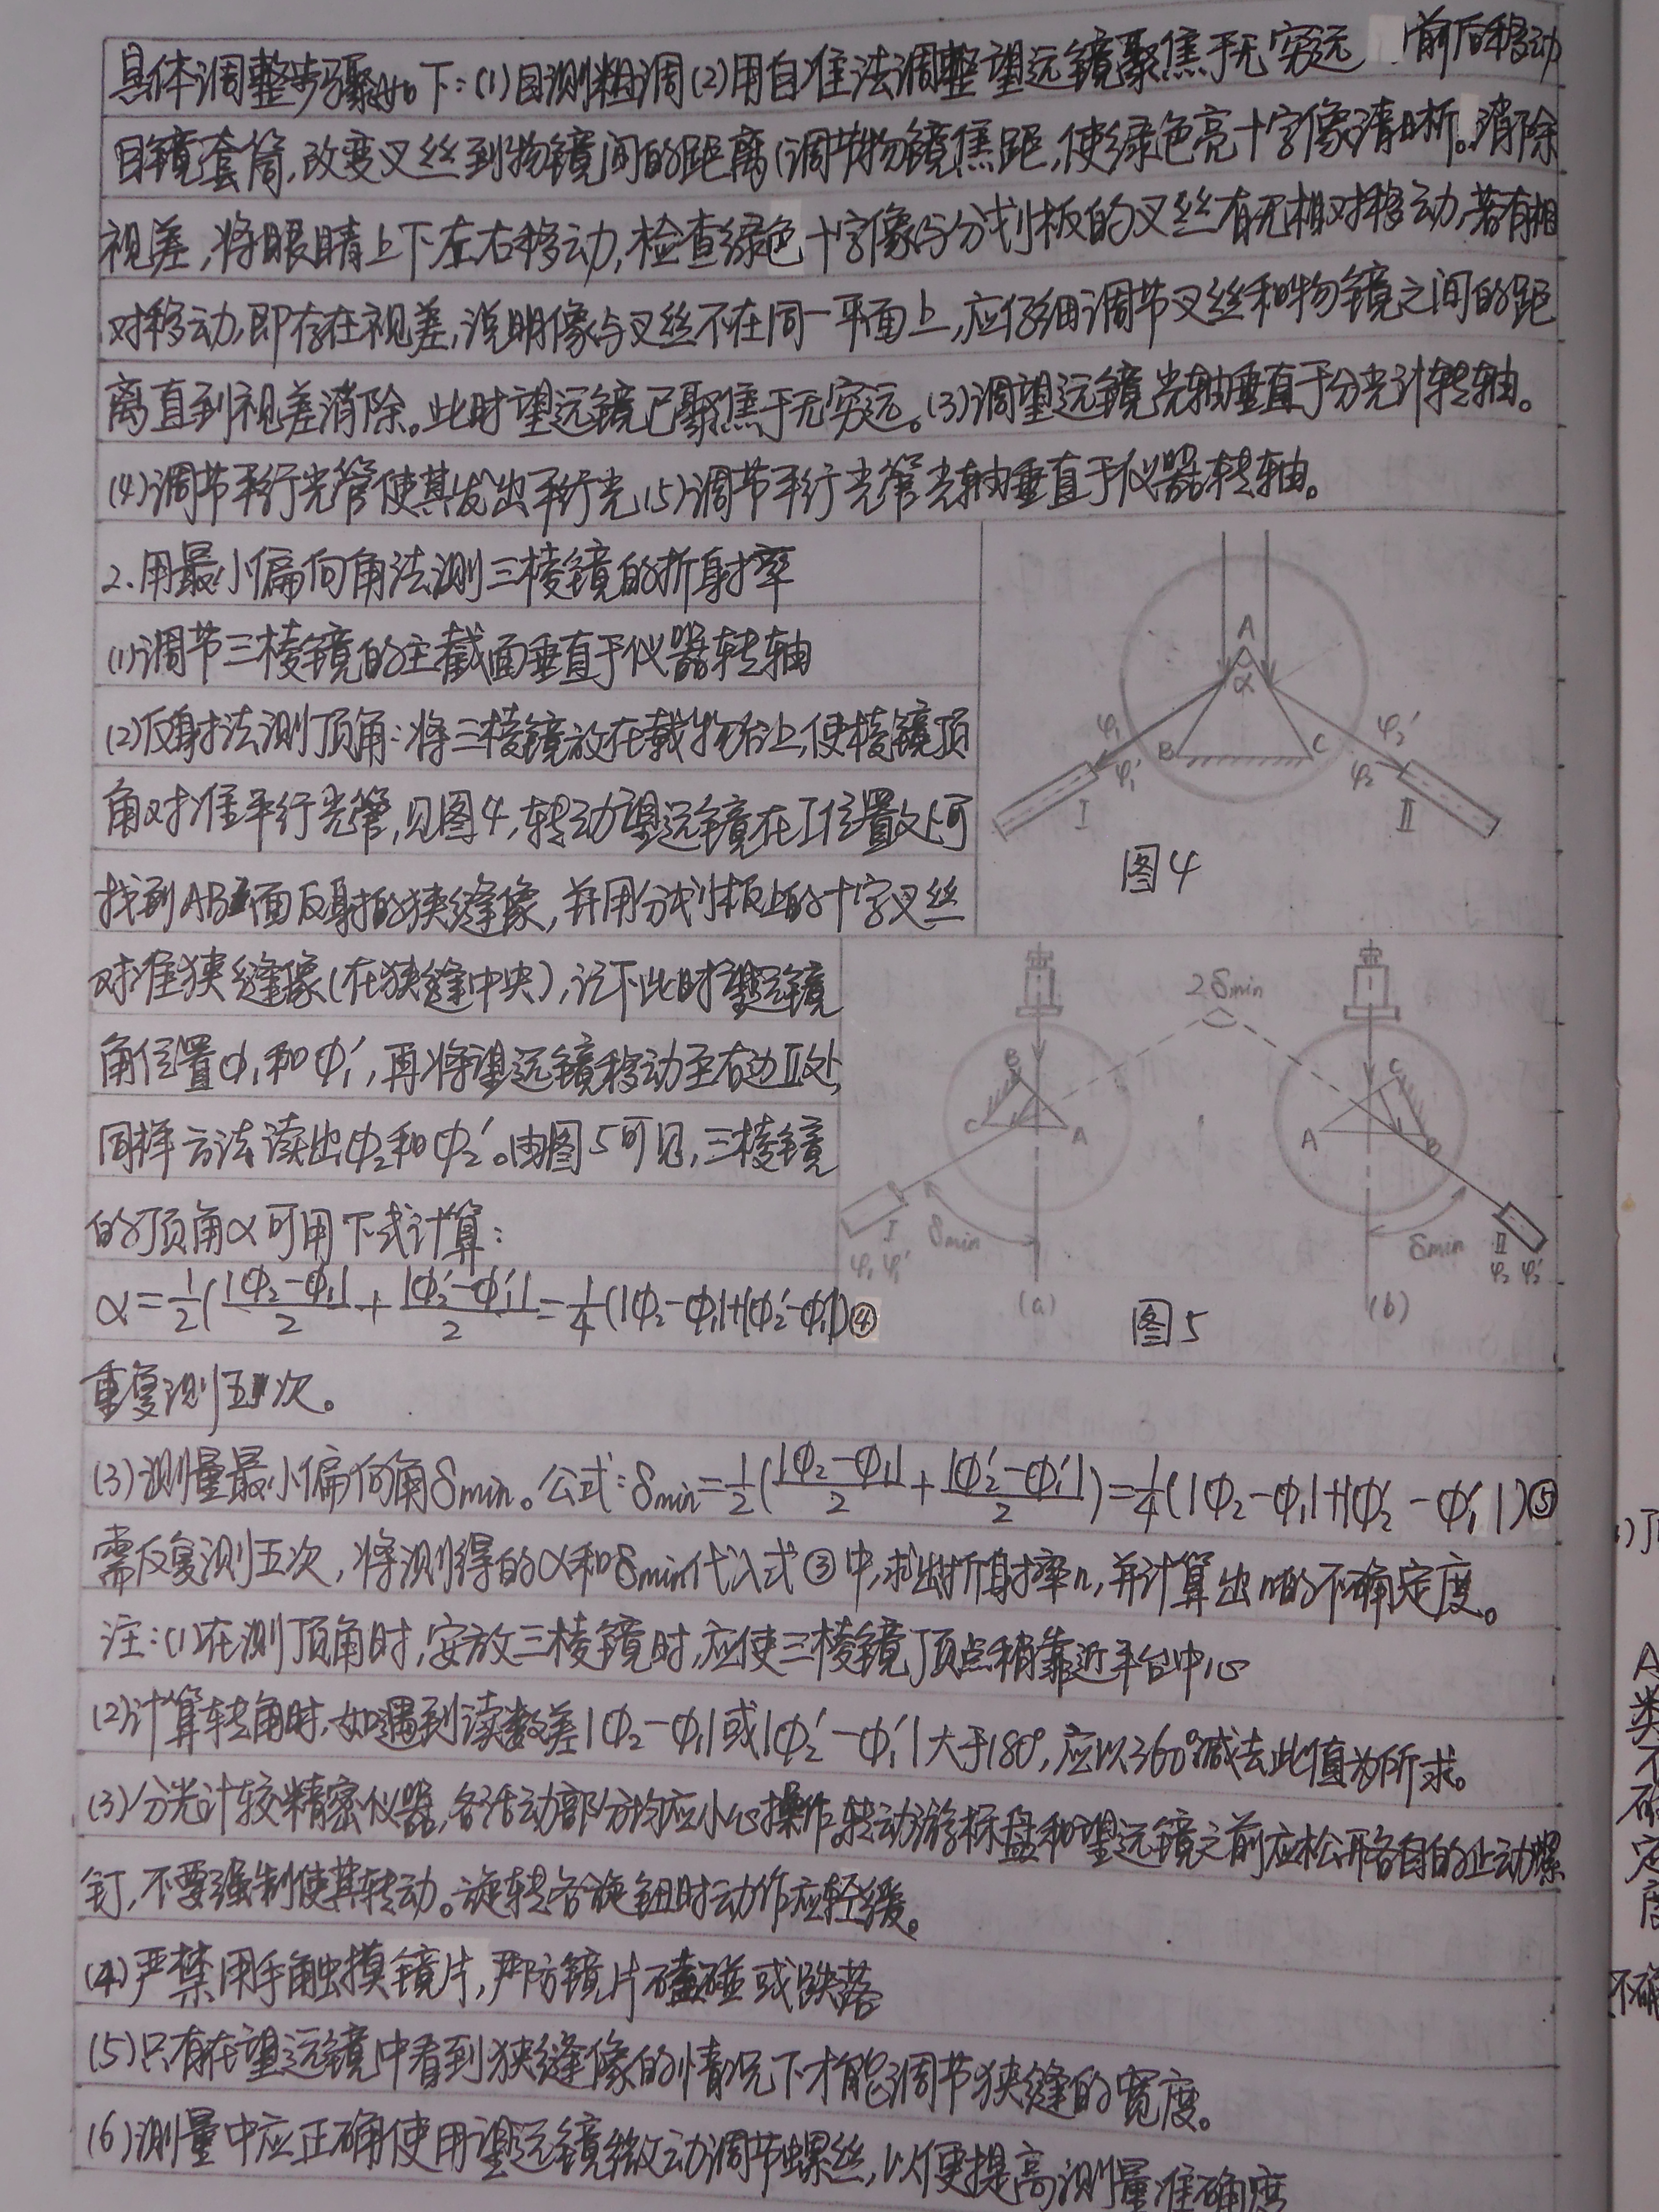 具体调整步骤如下:(1)目测粗调(2)用自准法调整望远镜聚焦于无穷远 前后移动
目镜套筒,改变叉丝到物镜间的距离(调节物镜焦距,使绿色亮十字像清晰。消除
视差,将眼睛上下左右移动,检查绿色十字像与分划板的叉丝有无相对移动,若有相
对移动,即存在视差,说明像与叉丝不在同一平面上,应仔细调节叉丝和物镜之间的距
离直到视差消除。此时望远镜已聚焦于无穷远。(3)调望远镜光轴垂直于分光计转轴。
(4)调节平行光管使其发出平行光(5)调节平行光管光轴垂直于仪器转轴。
2.用最小偏向角法测三棱镜的折射率
(1)调节三棱镜的主截面垂直于仪器转轴
(2)反射法测顶角:将三棱镜放在载物台上,使棱镜顶
角对准平行光管,见图4,转动望远镜在I位置处可
找到AB面反射的狭缝像,并用分划板上的十字叉丝
对准狭缝像(在狭缝中央),记下此时望远镜
角位置φ₁和φ₁′,再将望远镜移动至右边II处,
同样方法读出φ₂和φ₂′。由图5可见,三棱镜
的顶角α可用下式计算:
α=1/2(|φ₂-φ₁|/2+|φ₂′-φ₁′|/2=1/4(|φ₂-φ₁|+|φ₂′-φ₁′|)④
A
α
B
C
φ₁
φ₁′
φ₂′
φ₂
I
II
图4
2δmin
B
C
A
C
A
B
I
φ₁ φ₁′
δmin
δmin
II
φ₂ φ₂′
(a)
(b)
图5
重复测五次。
(3)测量最小偏向角δmin。公式:δmin=1/2(|φ₂-φ₁|/2+|φ₂′-φ₁′|/2)=1/4(|φ₂-φ₁|+|φ₂′-φ₁′|)⑤
需反复测五次,将测得的α和δmin代入式③中,求出折射率n,并计算出n的不确定度。
注:(1)在测顶角时,安放三棱镜时,应使三棱镜顶点稍靠近平台中心
(2)计算转角时,如遇到读数差|φ₂-φ₁|或|φ₂′-φ₁′|大于180°,应以360°减去此值为所求。
(3)分光计较精密仪器,各活动部分均应小心操作。转动游标盘和望远镜之前应松开各自的止动螺
钉,不要强制使其转动。旋转各旋钮时动作应轻缓。
(4)严禁用手触摸镜片,严防镜片磕碰或跌落
(5)只有在望远镜中看到狭缝像的情况下才能调节狭缝的宽度。
(6)测量中应正确使用望远镜微动调节螺丝,以便提高测量准确度
A
类
不
确
定
度
不确